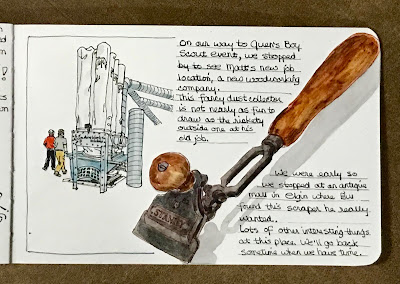 On our way to Quen's Boy
Scout event, we stopped
by to see Matt's new job
location, a new woodworking
company.
This fancy dust collector
is not nearly as fun to
draw as the rickety
outside one at his
old job.
We were early so
we stopped at an antique
mall in Elgin where
found this scraper he really
wanted.
Lots of other interesting things
at this place. We'll go back
sometime when we have time.
STANLEY